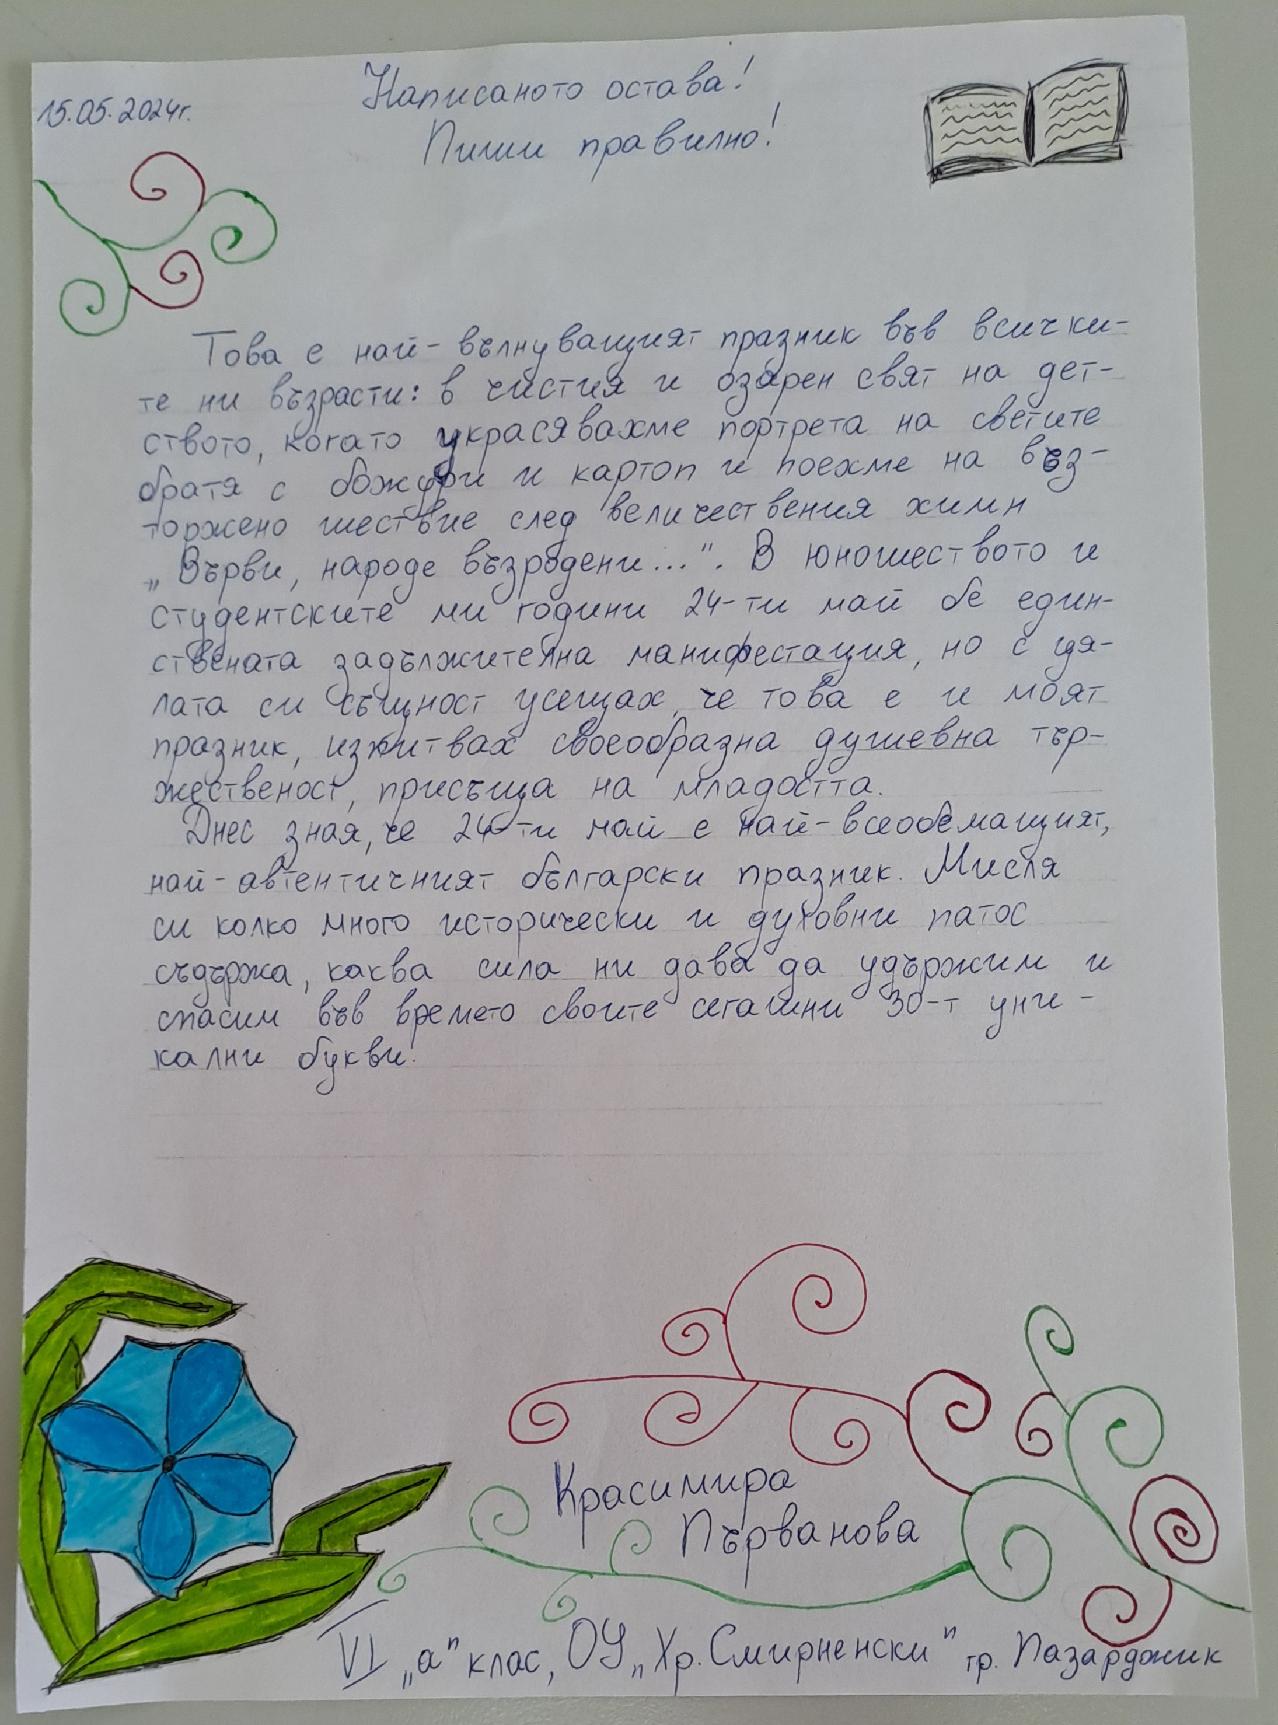 15.05.2024г.
Написаното остава!
Пиши правилно!
Това е най-вълнуващият празник във всички-
те ни възрасти: в чистия и озарен свят на дет-
ството, когато украсявахме портрета на светите
братя с божури и картоп и поехме на въз-
торжено шествие след величествения химн
„Върви, народе възродени...". В юношеството и
студентските ми години 24-ти май бе един-
ствената задължителна манифестация, но с ця-
лата си същност усещах, че това е и моят
празник, изжитвах своеобразна душевна тър-
жественост, присъща на младостта.
Днес зная, че 24-ти май е най-всеобемащият,
най-автентичният български празник. Мисля
си колко много исторически и духовни патос
съдържа, каква сила ни дава да удържим и
спасим във времето своите сегашни 30-т уни-
кални букви!
Красимира
Първанова
VI „а" клас, ОУ „Хр. Смирненски" гр. Пазарджик